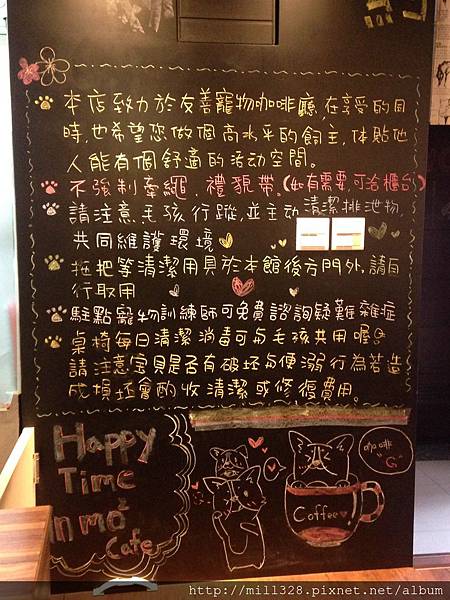 本店致力於友善寵物咖啡廳,在享受的同
時,也希望您做個高水平的飼主,体貼他
人能有個舒適的活动空間。
不強制牽繩、禮貌帶。(如有需要,可洽櫃台)
請注意毛孩行蹤,並主动清潔排泄物,
共同維護環境
拖把等清潔用具於本館後方門外,請自
行取用
駐點寵物訓練師可免費諮詢疑難雜症
桌椅每日清潔消毒可与毛孩共用喔
請注意宝貝是否有破坏与便溺行為若造
成損坏會酌收清潔或修復費用。
Happy
Time
in mo²
Cafe
咖啡
Coffee
http://mill328.pixnet.net/album